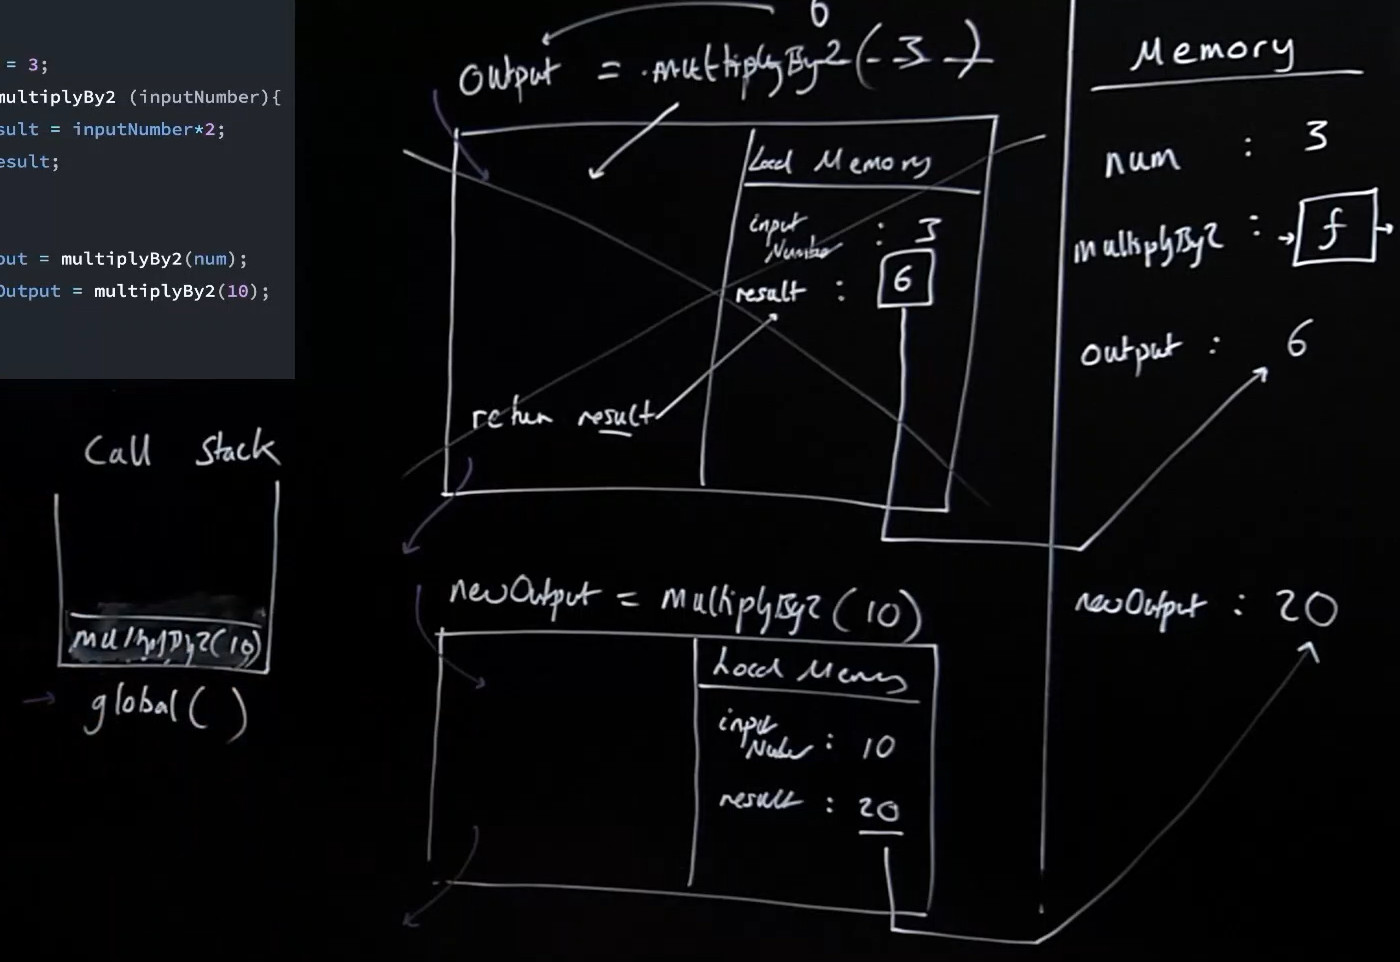 = 3;
multiplyBy2 (inputNumber){
sult = inputNumber*2;
esult;
put = multiplyBy2(num);
Output = multiplyBy2(10);
Call Stack
multiplyBy2(10)
global()
6
Output = multiplyBy2(-3-)
Local Memory
input
Number : 3
result : 6
return result
newOutput = multiplyBy2(10)
Local Memory
input
Number : 10
result : 20
Memory
num : 3
multiplyBy2 : f
output : 6
newOutput : 20